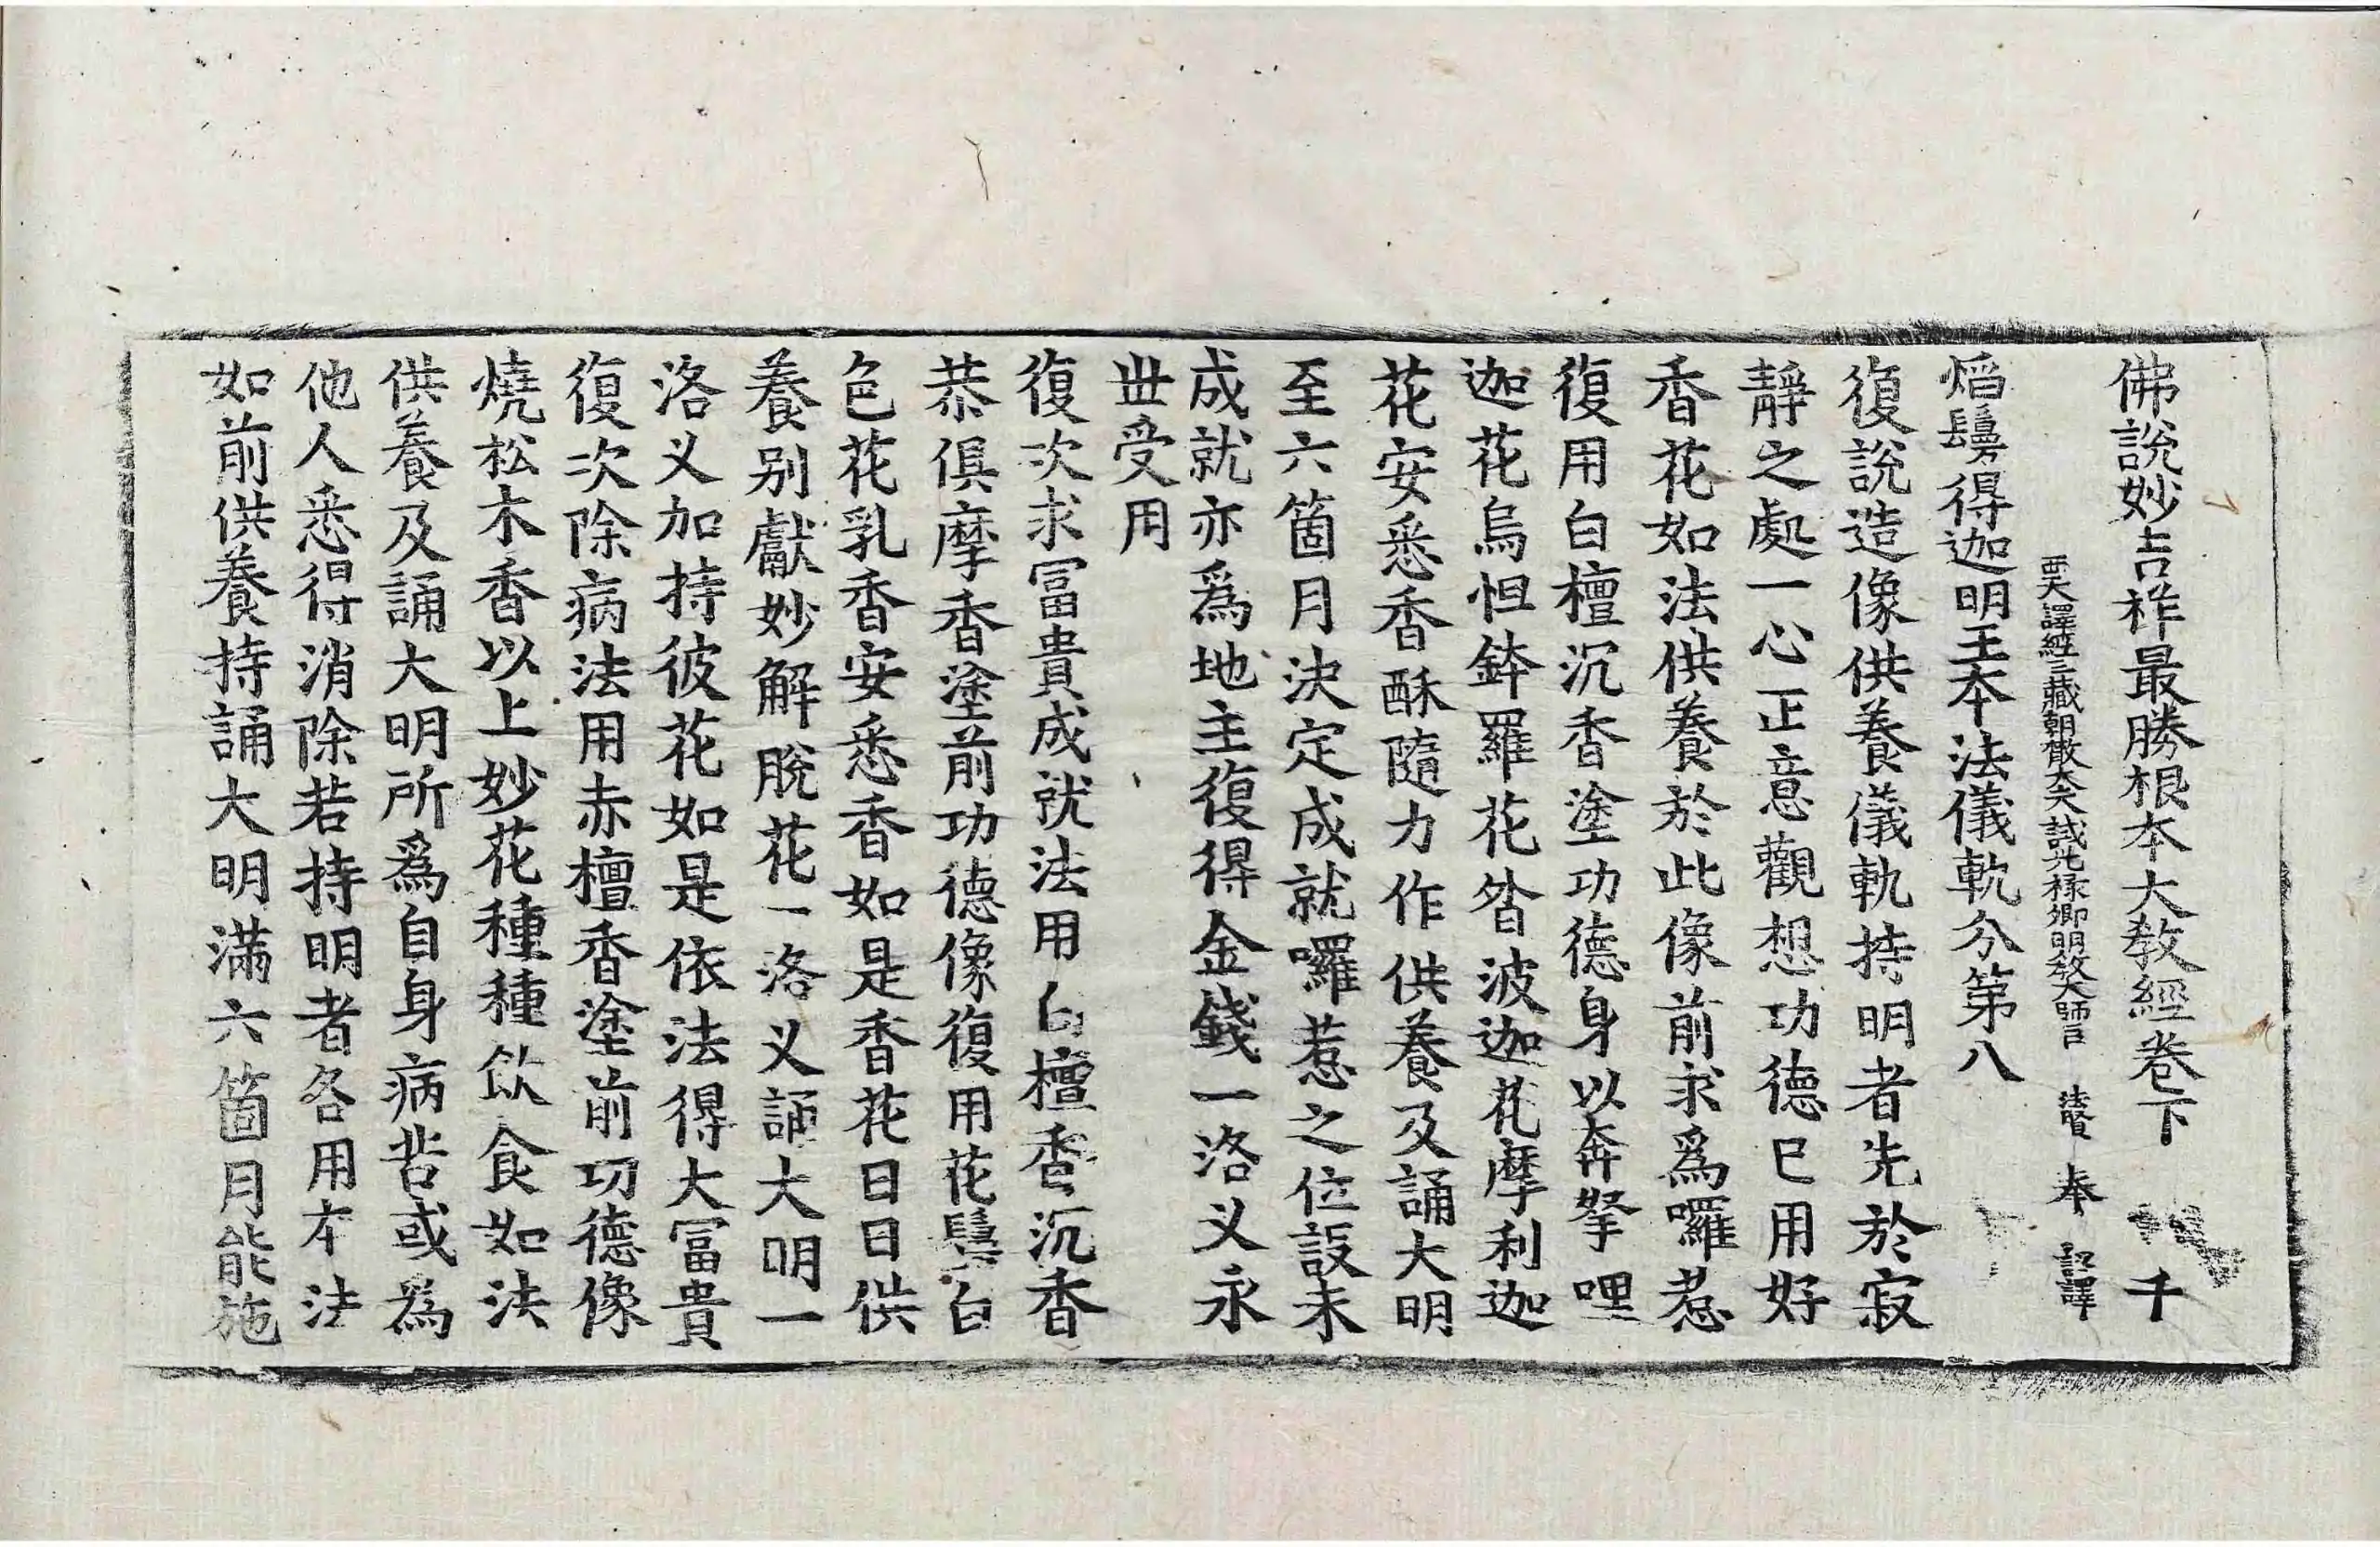 佛說妙吉祥最勝根本大教經卷下 千
西天譯經三藏朝散大夫試光祿卿明教大師臣 法賢 奉 詔譯
焰鬘得迦明王本法儀軌分第八
復說造像供養儀軌持明者先於寂
靜之處一心正意觀想功德已用好
香花如法供養於此像前求爲囉惹
復用白檀沉香塗功德身以奔拏哩
迦花烏怛鉢羅花昝波迦花摩利迦
花安悉香酥隨力作供養及誦大明
至六箇月決定成就囉惹之位設未
成就亦爲地主復得金錢一洛叉永
丗受用
復次求冨貴成就法用白檀香沉香
恭俱摩香塗前功德像復用花鬘白
色花乳香安悉香如是香花日日供
養别獻妙解脫花一洛叉誦大明一
洛叉加持彼花如是依法得大冨貴
復次除病法用赤檀香塗前功德像
燒松木香以上妙花種種飲食如法
供養及誦大明所爲自身病苦或爲
他人悉得消除若持明者各用本法
如前供養持誦大明滿六箇月能施